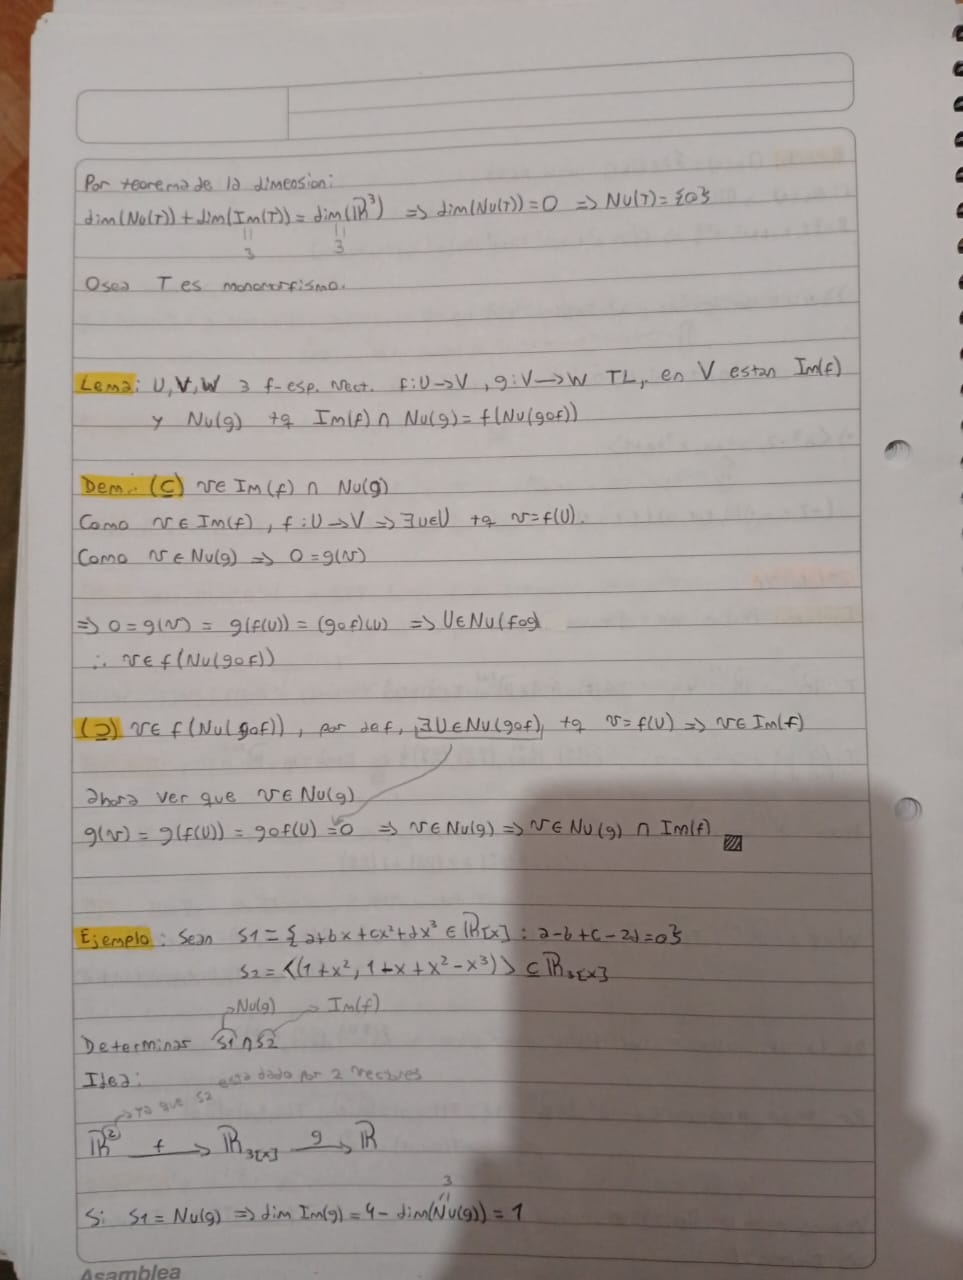 Por teorema de la dimension:
dim(Nu(T)) + dim(Im(T)) = dim(ℝ³) => dim(Nu(T)) = 0 => Nu(T) = {0}
|| ||
3 3
Osea T es monomorfismo.
Lema: U, V, W 3 f-esp. vect. f: U → V, g: V → W TL, en V estan Im(f)
y Nu(g) tq Im(f) ∩ Nu(g) = f(Nu(gof))
Dem: (⊆) v ∈ Im(f) ∩ Nu(g)
Como v ∈ Im(f), f: U → V => ∃ u ∈ U tq v = f(U).
Como v ∈ Nu(g) => 0 = g(v)
=> 0 = g(v) = g(f(U)) = (gof)(U) => U ∈ Nu(fog)
∴ v ∈ f(Nu(gof))
(⊇) v ∈ f(Nu(gof)), por def, ∃ U ∈ Nu(gof), tq v = f(U) => v ∈ Im(f)
ahora ver que v ∈ Nu(g)
g(v) = g(f(U)) = gof(U) = 0 => v ∈ Nu(g) => v ∈ Nu(g) ∩ Im(f)
Ejemplo: Sean S1 = {a+bx+cx²+dx³ ∈ ℝ[x] : a-b+c-2d=0}
S2 = <(1+x², 1+x+x²-x³)> ⊆ ℝ3[x]
→ Nu(g) → Im(f)
Determinar S1 ∩ S2
Idea:
→ ya que S2 esta dado por 2 vectores
ℝ² f → ℝ3[x] g → ℝ
3
||
Si S1 = Nu(g) => dim Im(g) = 4 - dim(Nu(g)) = 1
Asamblea